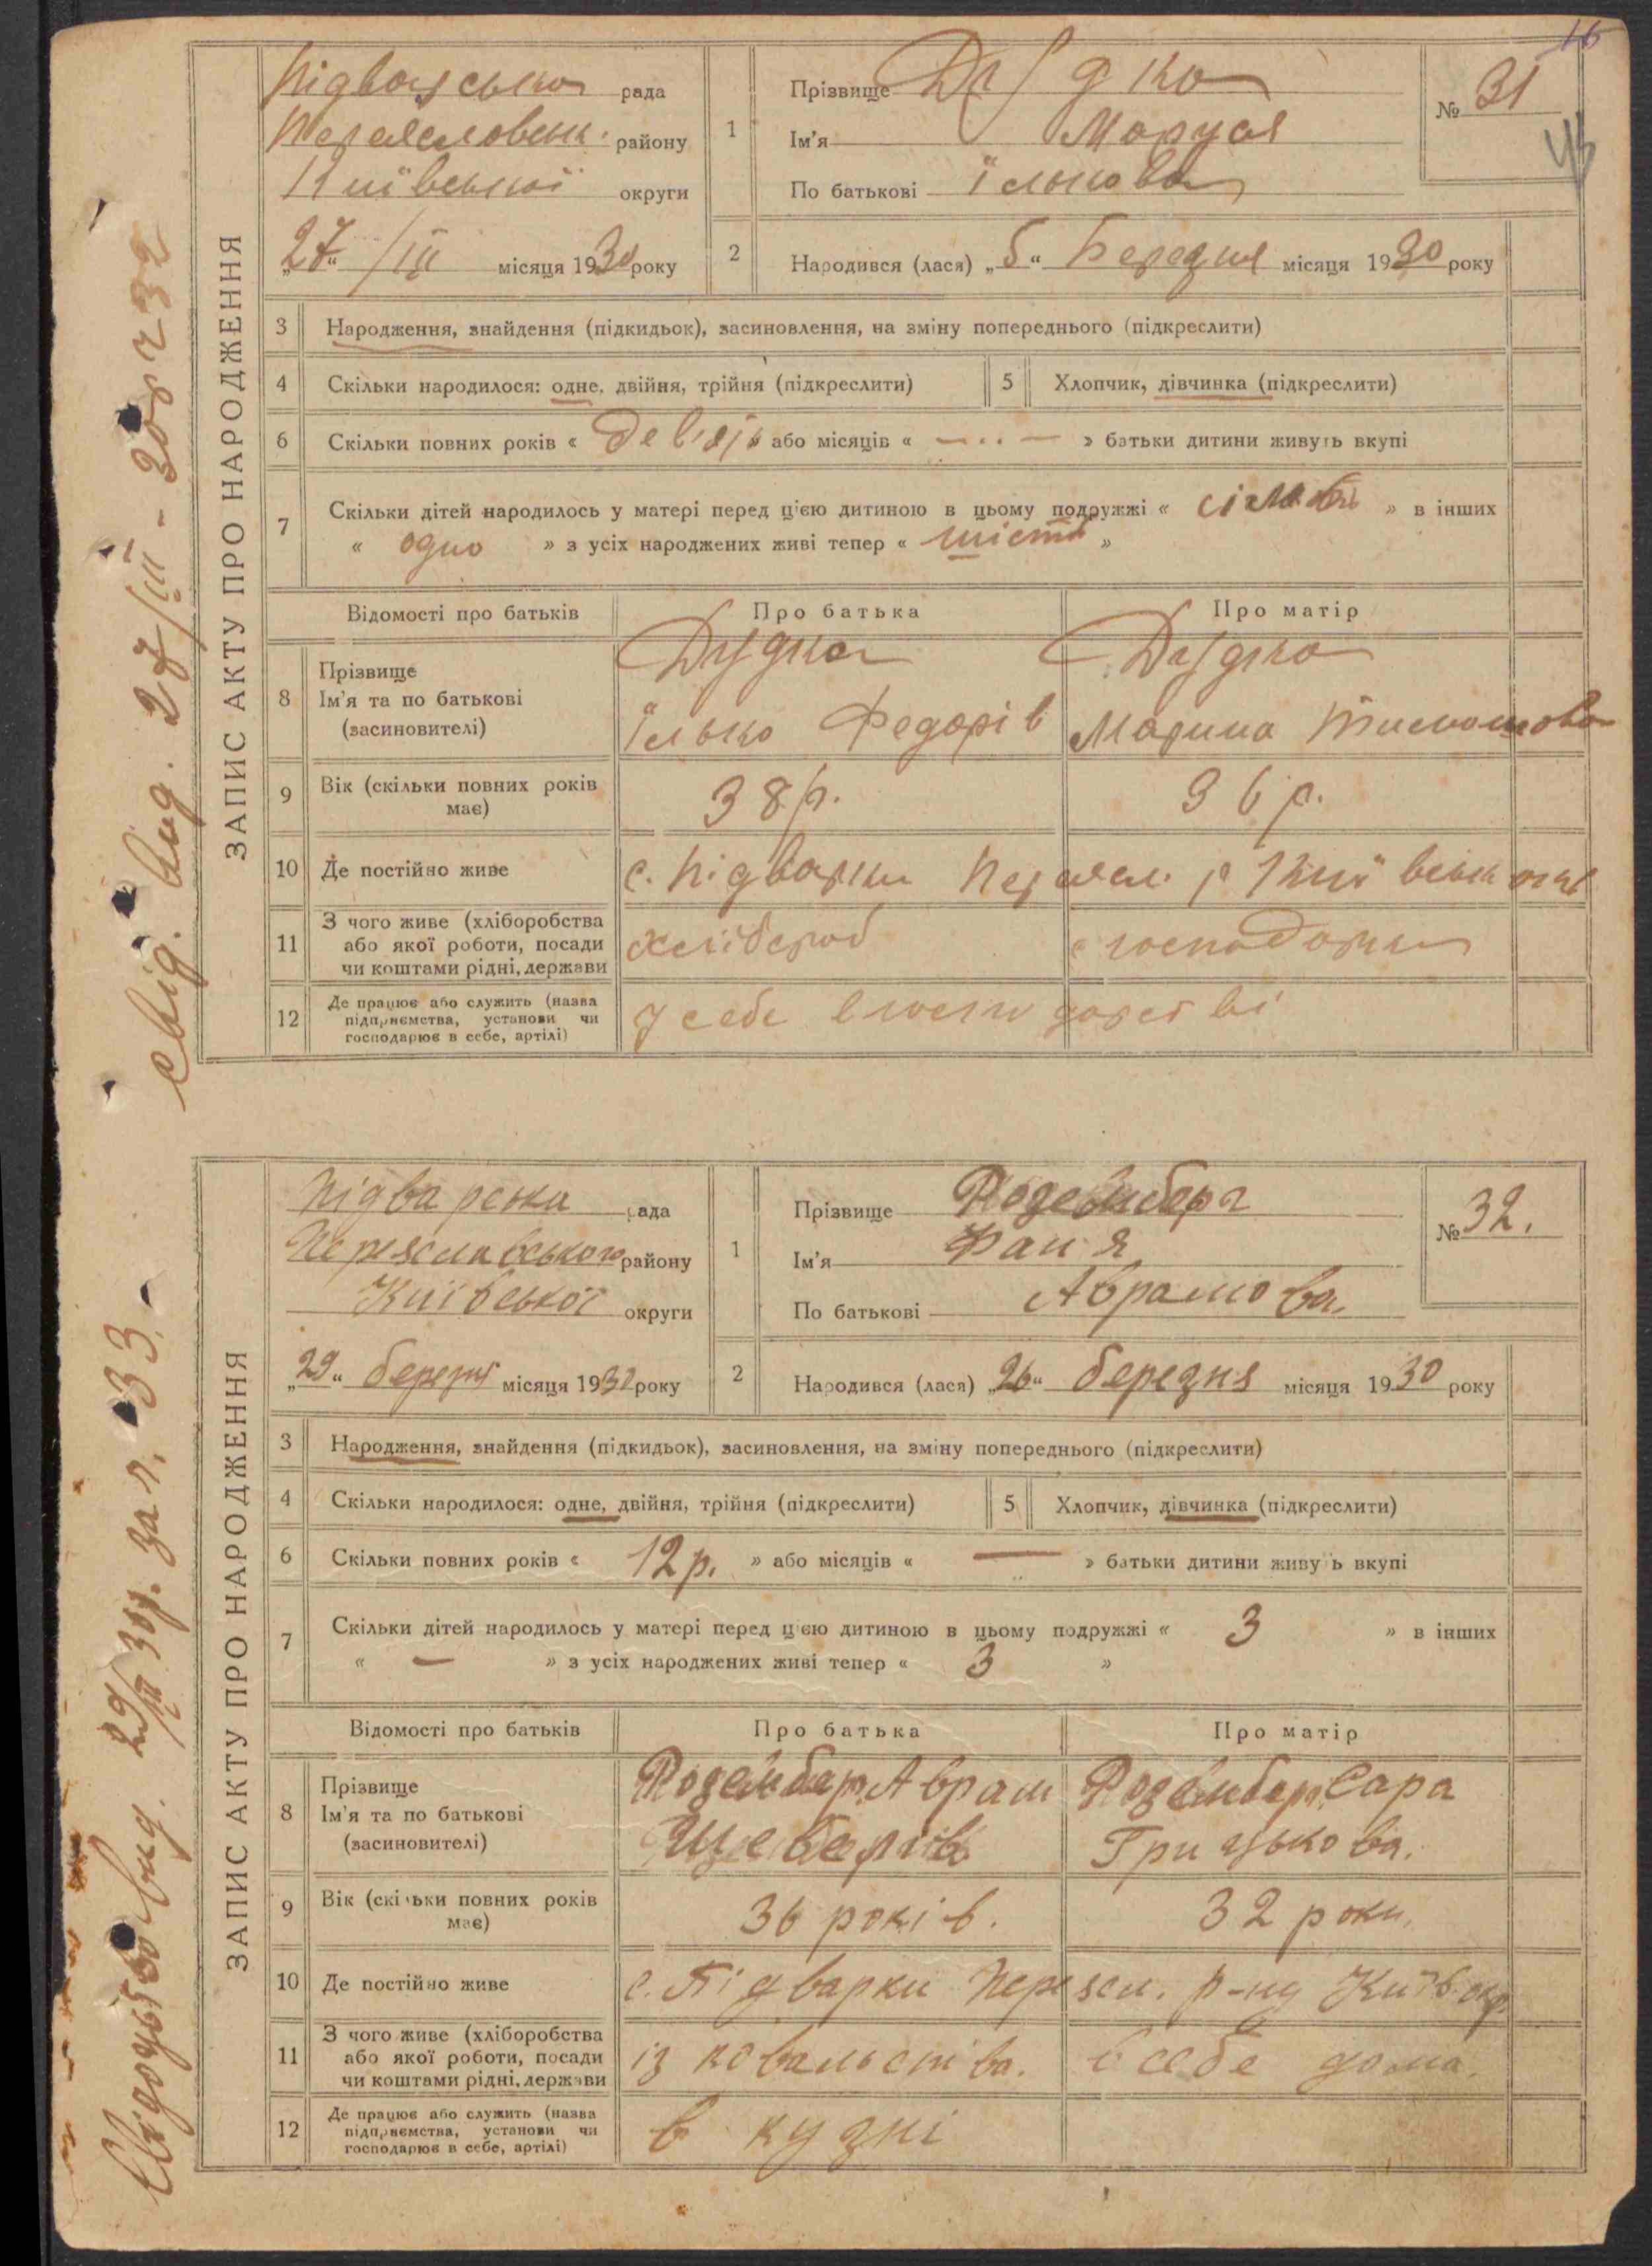 16
ЗАПИС АКТУ ПРО НАРОДЖЕННЯ
Підварська рада
Переяславськ. району
Київської округи
„27“ /III місяця 1930 року
1
Прізвище Дудка
Ім'я Маруся
По батькові Ількова
№ 31
2
Народився (лася) „5“ Березня місяця 1930 року
3 Народження, знайдення (підкидьок), засиновлення, на зміну попереднього (підкреслити)
4 Скільки народилося: одне, двійня, трійня (підкреслити) 5 Хлопчик, дівчинка (підкреслити)
6 Скільки повних років « девять » або місяців « — » батьки дитини живуть вкупі
7 Скільки дітей народилось у матері перед цією дитиною в цьому подружжі « » в інших
« одно » з усіх народжених живі тепер « шість »
Відомості про батьків Про батька Про матір
8 Прізвище Ім'я та по батькові (засиновителі)
Дудка Дудка
Ілько Федорів Марина Тимошова
9 Вік (скільки повних років має) 38 р. 36 р.
10 Де постійно живе с. Підварки Переясл. р Київськ окр
11 З чого живе (хліборобства або якої роботи, посади чи коштами рідні, держави хлібороб господарки
12 Де працює або служить (назва підприємства, установи чи господарює в себе, артілі) у себе в господарстві
свід. вид. 27/III - 30 р ч 32
ЗАПИС АКТУ ПРО НАРОДЖЕННЯ
Підварська рада
Переяславського району
Київської округи
„29“ березня місяця 1930 року
1
Прізвище Розенберг
Ім'я Фаня
По батькові Аврамова.
№ 32.
2
Народився (лася) „26“ березня місяця 1930 року
3 Народження, знайдення (підкидьок), засиновлення, на зміну попереднього (підкреслити)
4 Скільки народилося: одне, двійня, трійня (підкреслити) 5 Хлопчик, дівчинка (підкреслити)
6 Скільки повних років « 12 р. » або місяців « — » батьки дитини живуть вкупі
7 Скільки дітей народилось у матері перед цією дитиною в цьому подружжі « 3 » в інших
« — » з усіх народжених живі тепер « 3 »
Відомості про батьків Про батька Про матір
8 Прізвище Ім'я та по батькові (засиновителі)
Розенбер. Аврам Розенбер. Сара
Грицькова.
9 Вік (скільки повних років має) 36 років. 32 роки.
10 Де постійно живе с. Підварки Переясл. р-ну Київ. окр.
11 З чого живе (хліборобства або якої роботи, посади чи коштами рідні, держави із ковальства. в себе дома.
12 Де працює або служить (назва підприємства, установи чи господарює в себе, артілі) в кузні
вид. 29/III 30 р. за ч. 33.-